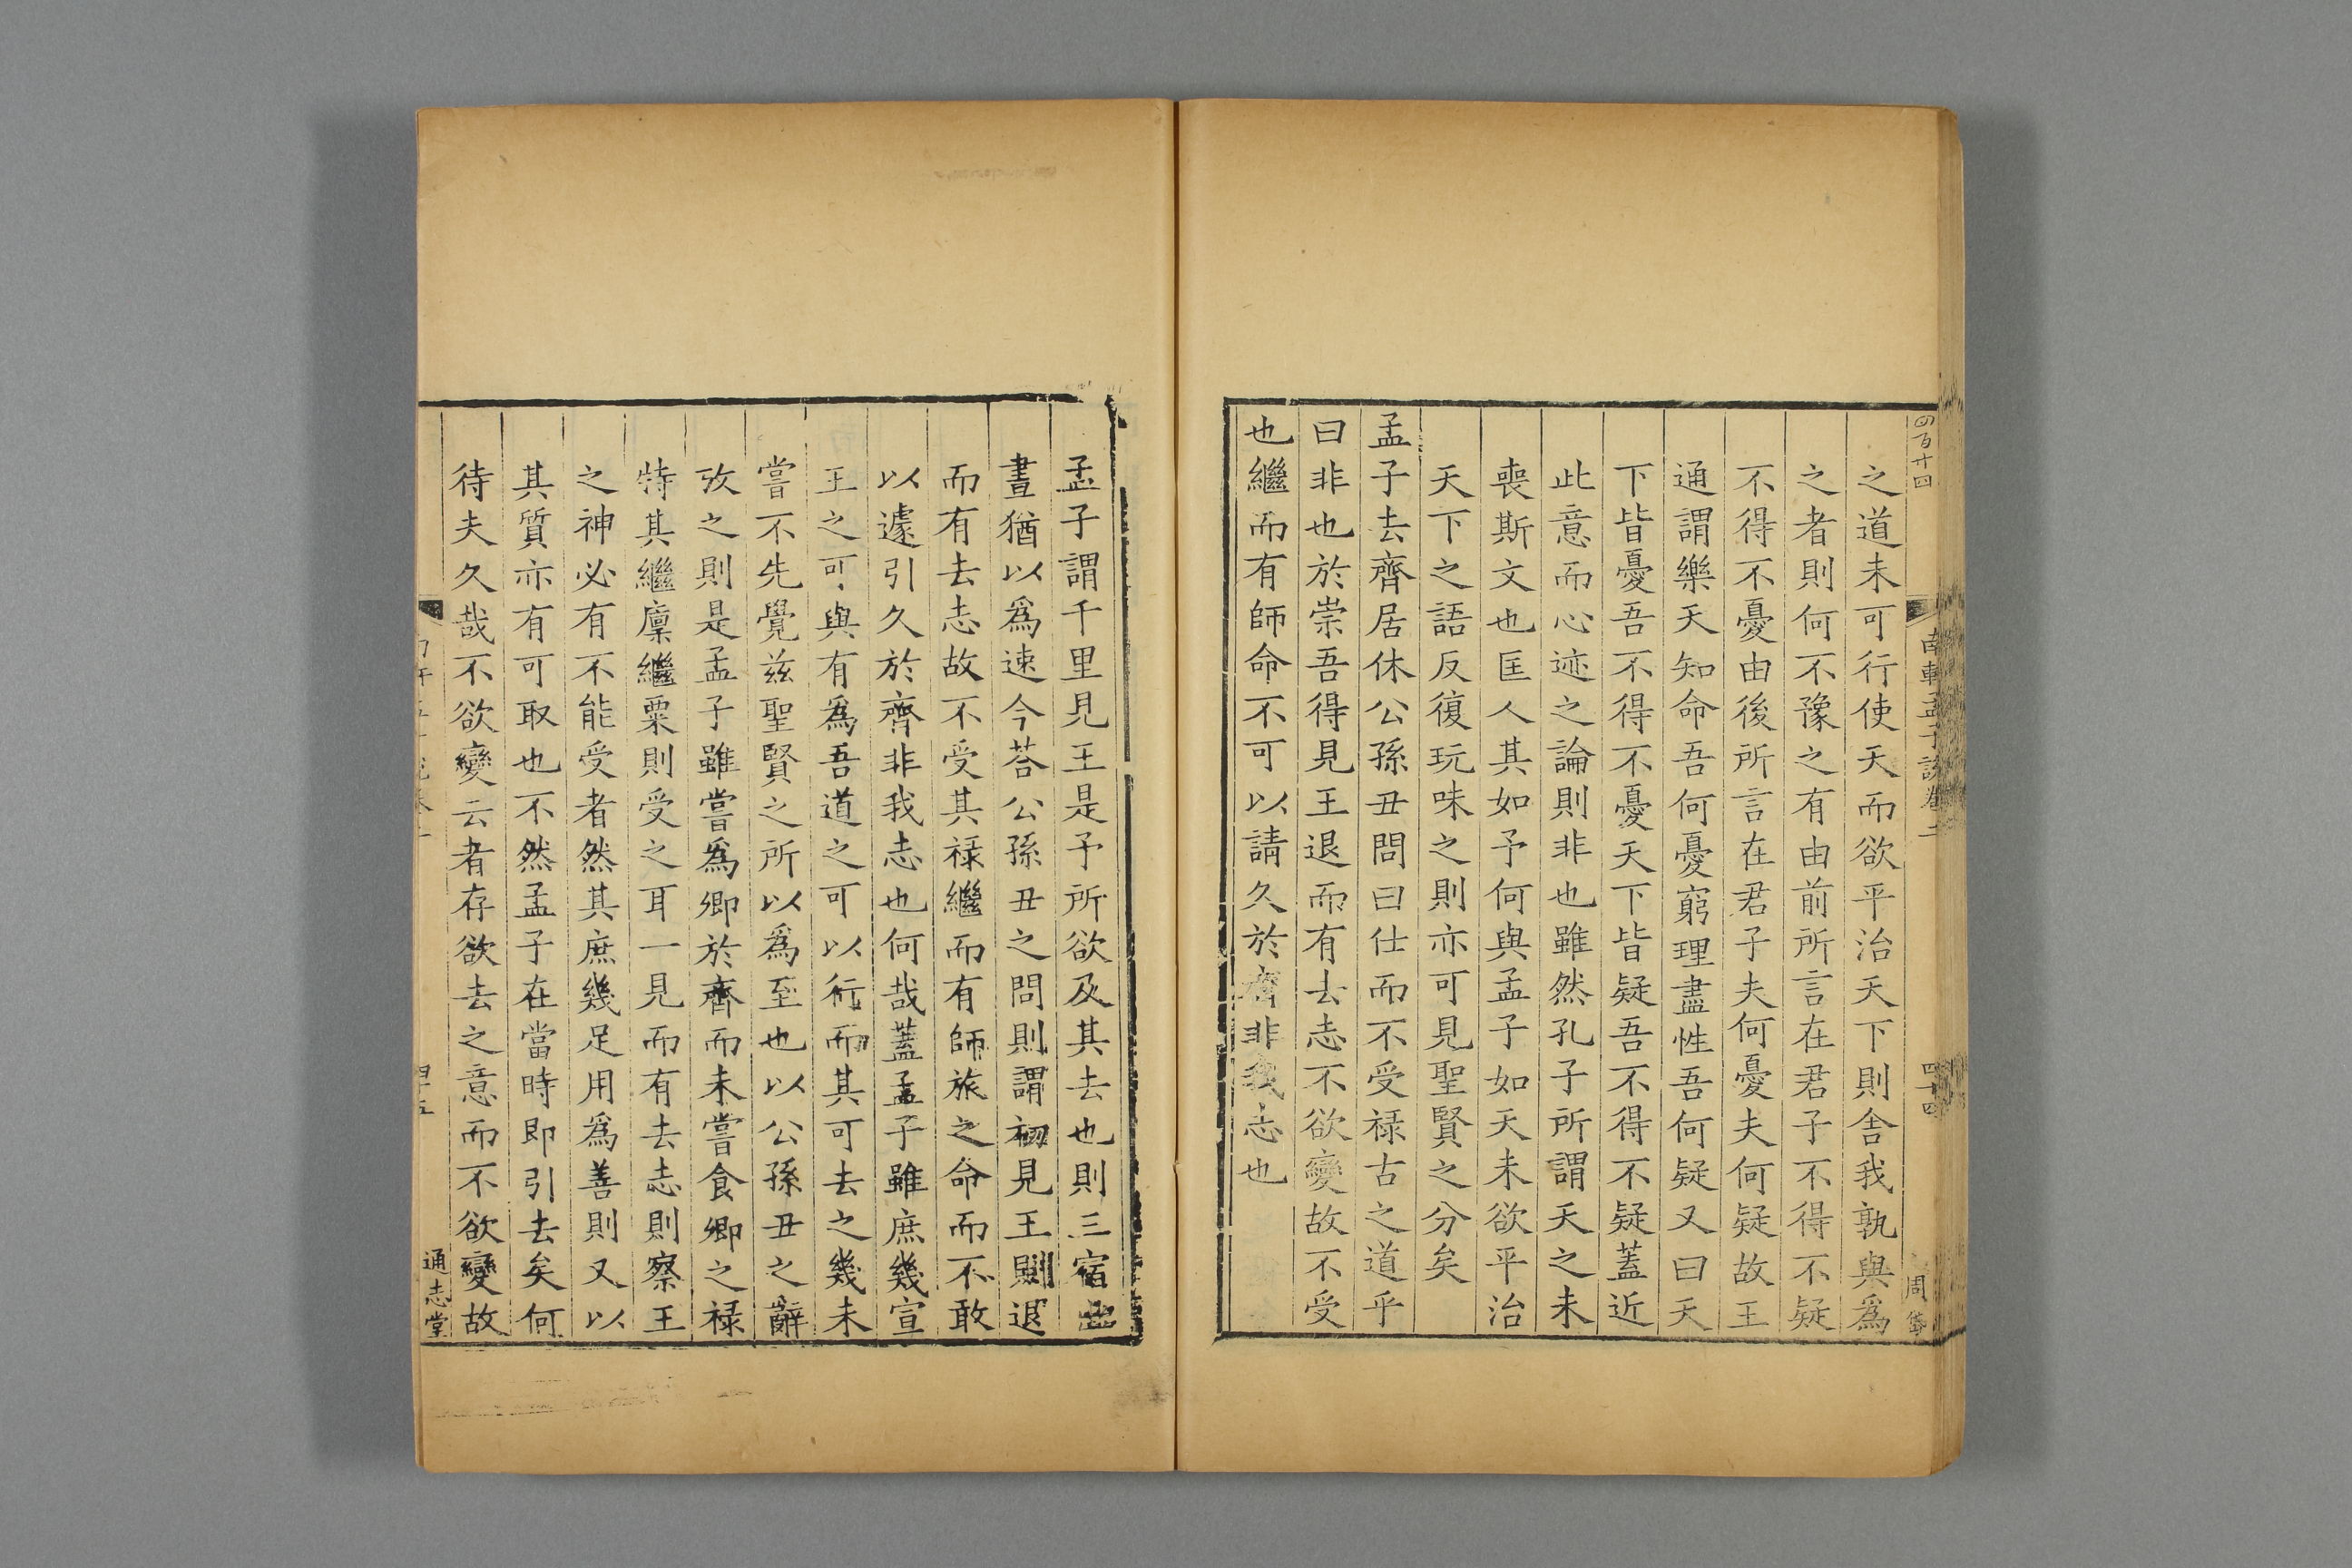 四百十四
南軒孟子說卷二
四十四
周
之道未可行使天而欲平治天下則舍我孰與爲
之者則何不豫之有由前所言在君子不得不疑
不得不憂由後所言在君子夫何憂夫何疑故王
通謂樂天知命吾何憂窮理盡性吾何疑又曰天
下皆憂吾不得不憂天下皆疑吾不得不疑蓋近
此意而心迹之論則非也雖然孔子所謂天之未
喪斯文也匡人其如予何與孟子如天未欲平治
天下之語反復玩味之則亦可見聖賢之分矣
孟子去齊居休公孫丑問曰仕而不受祿古之道乎
曰非也於崇吾得見王退而有去志不欲變故不受
也繼而有師命不可以請久於齊非我志也
孟子謂千里見王是予所欲及其去也則三宿出
晝猶以爲速今荅公孫丑之問則謂初見王則退
而有去志故不受其祿繼而有師旅之命而不敢
以遽引久於齊非我志也何哉蓋孟子雖庶幾宣
王之可與有爲吾道之可以行而其可去之幾未
嘗不先覺兹聖賢之所以爲至也以公孫丑之辭
攷之則是孟子雖嘗爲卿於齊而未嘗食卿之祿
特其繼廩繼粟則受之耳一見而有去志則察王
之神必有不能受者然其庶幾足用爲善則又以
其質亦有可取也不然孟子在當時即引去矣何
待夫久哉不欲變云者存欲去之意而不欲變故
四十五
通志堂